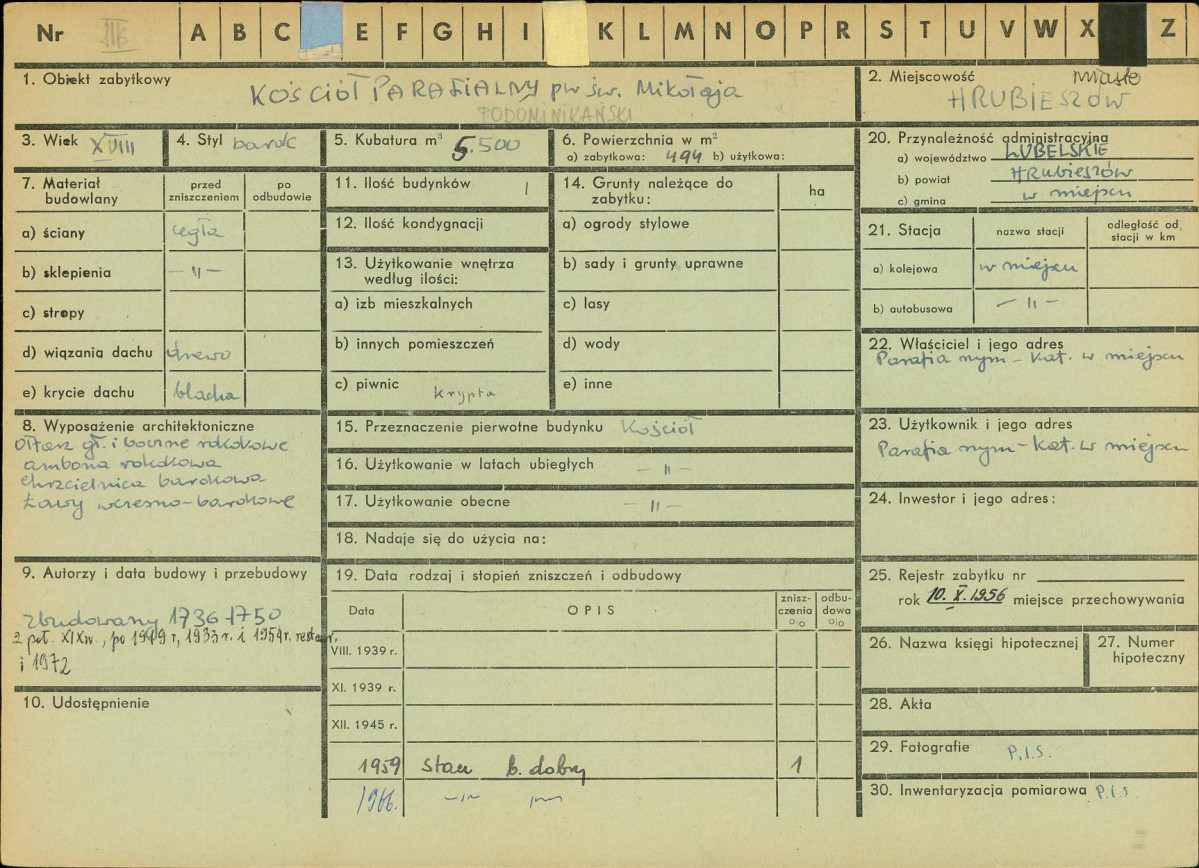 Nr III A B C E F G H I K L M N O P R S T U V W X Z
1. Obiekt zabytkowy
KOŚCIÓŁ PARAFIALNY pw św. Mikołaja
PODOMINIKAŃSKI
2. Miejscowość miasto
HRUBIESZÓW
3. Wiek XVIII
4. Styl barok
5. Kubatura m³ 5.500
6. Powierzchnia w m²
a) zabytkowa: 494 b) użytkowa:
7. Materiał budowlany
przed zniszczeniem
po odbudowie
a) ściany cegła
b) sklepienia — " —
c) stropy
d) wiązania dachu drewo
e) krycie dachu blacha
8. Wyposażenie architektoniczne
Ołtarz gł. i boczne rokokowe
ambona rokokowa
chrzcielnica barokowa
Ławy wczesno-barokowe
9. Autorzy i data budowy i przebudowy
Zbudowany 1736-1750
2 poł. XIXw., po 1949 r, 1933 r. i 1954 r. restaur.
i 1972
10. Udostępnienie
11. Ilość budynków 1
12. Ilość kondygnacji
13. Użytkowanie wnętrza
według ilości:
a) izb mieszkalnych
b) innych pomieszczeń
c) piwnic krypta
14. Grunty należące do
zabytku:
ha
a) ogrody stylowe
b) sady i grunty uprawne
c) lasy
d) wody
e) inne
15. Przeznaczenie pierwotne budynku Kościół
16. Użytkowanie w latach ubiegłych — " —
17. Użytkowanie obecne — " —
18. Nadaje się do użycia na:
19. Data rodzaj i stopień zniszczeń i odbudowy
Data OPIS zniszczenia o/o odbudowa o/o
VIII. 1939 r.
XI. 1939 r.
XII. 1945 r.
1959 stan b. dobry 1
1966. — " — — " —
20. Przynależność administracyjna
a) województwo LUBELSKIE
b) powiat Hrubieszów
c) gmina w miejscu
21. Stacja
nazwa stacji
odległość od stacji w km
a) kolejowa w miejscu
b) autobusowa — " —
22. Właściciel i jego adres
Parafia rzym-Kat. w miejscu
23. Użytkownik i jego adres
Parafia rzym-Kat. w miejscu
24. Inwestor i jego adres:
25. Rejestr zabytku nr
rok 10. X. 1956 miejsce przechowywania
26. Nazwa księgi hipotecznej
27. Numer
hipoteczny
28. Akta
29. Fotografie P.I.S.
30. Inwentaryzacja pomiarowa P.I.S.